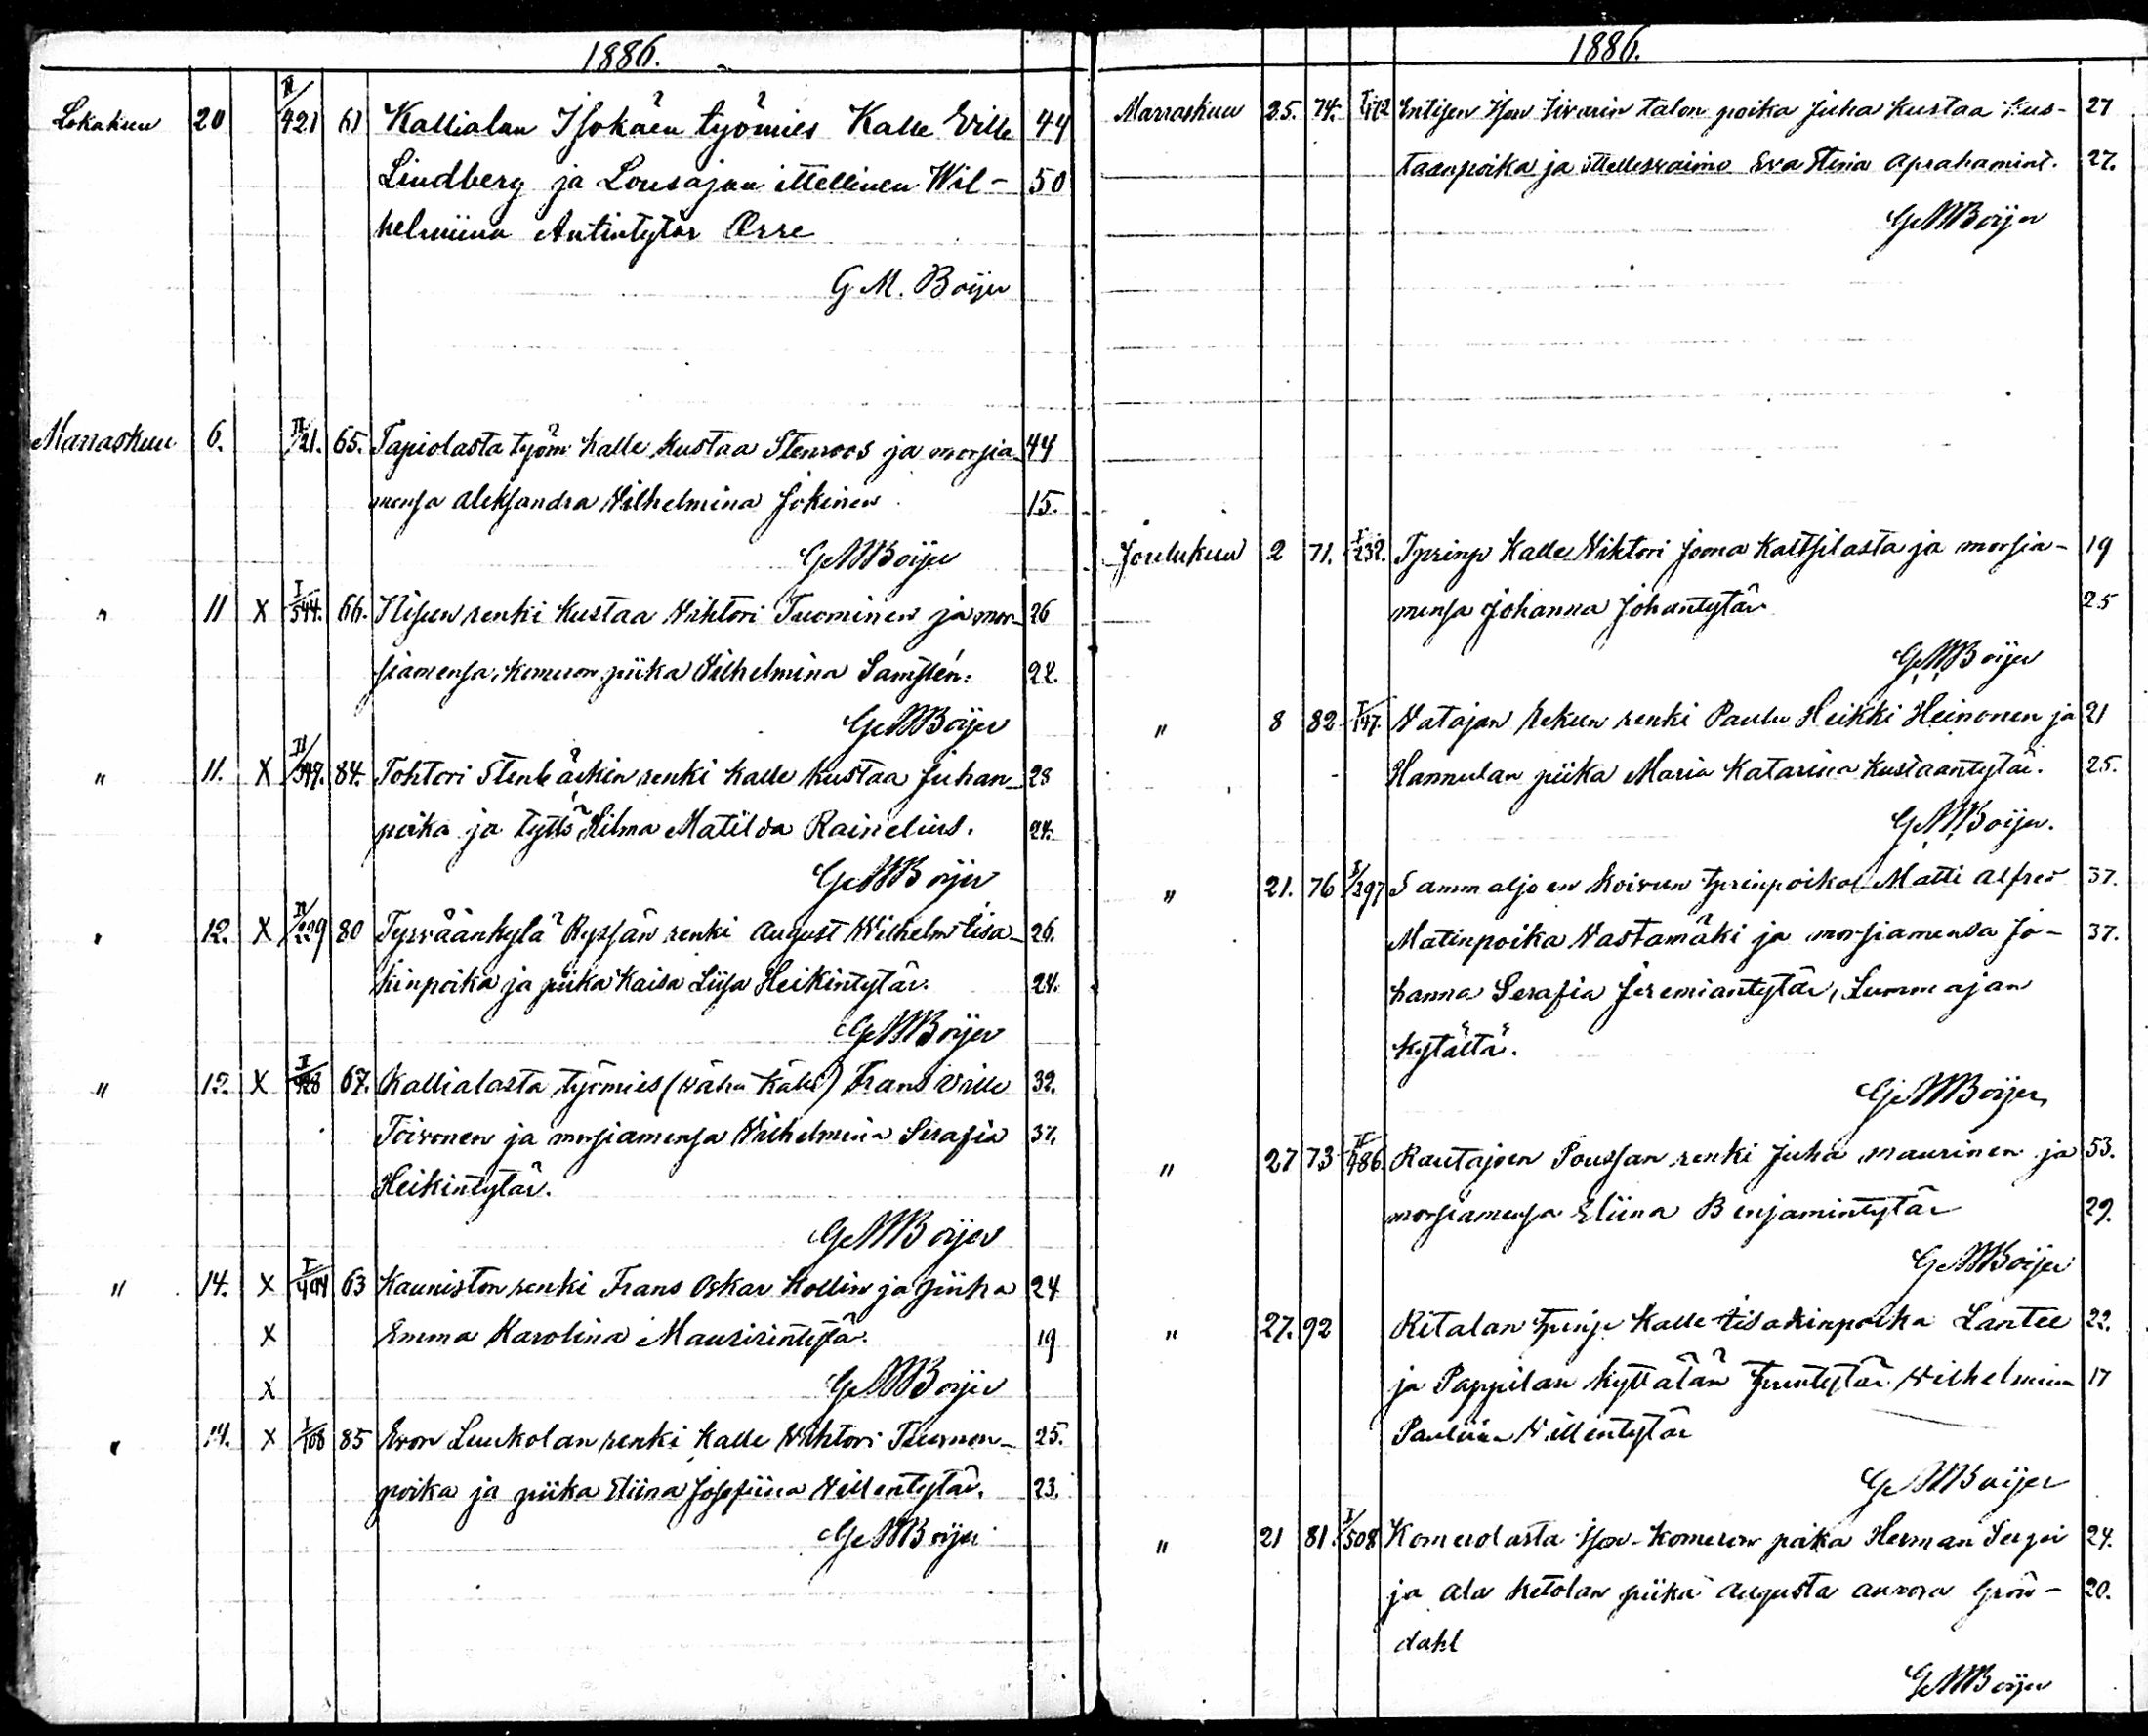 1886.
Lokakuu 20 II/421 61 Kallialan Isokäen työmies Kalle Ville 44
Lindberg ja Lousajan ittellinen Wil- 50
helmiina Antintytär Ærre
G. M. Boijer
Marraskuu 6. II/21. 65. Tapiolasta työm Kalle Kustaa Stenroos ja morsia- 44
mensa Aleksandra Vilhelmina Jokinen 15.
G M Boijer
" 11 X I/544. 66. renki Kustaa Vihtori Tuominen ja mor- 26
siamensa, Komeron piika Vilhelmina Samstén. 22.
G M Boijer
" 11. X II/349. 84. Tohtori Stenbäckin renki Kalle Kustaa Juhan- 28
poika ja tyttö Hilma Matilda Rainelius. 24.
G M Boijer
" 12. X II/229 80 Tyrväänkylä Rypsän renki August Wilhelm Iisa- 26.
kinpoika ja piika Kaisa Liisa Heikintytär. 24.
G M Boijer
" 12. X II/428 67. Kallialasta työmies (vähä Käki) Frans Ville 32.
Toivonen ja morsiamensa Vilhelmina Serafia 37.
Heikintytär.
G M Boijer
" 14. X I/494 63 Kauniston renki Frans Oskar Kollin ja piika 24
X Emma Karolina Maurisintytär. 19
X G M Boijer
" 14. X I/108 85 Eron Luukolan renki Kalle Vihtori Tuomon- 25.
poika ja piika Stiina Josefiina Villentytär. 23.
G M Boijer
1886.
Marraskuu 25. 74. I/172 Entisen Ison Iivarin talon poika Juha Kustaa Kus- 27
taanpoika ja ittellesvaimo Eva Stina Aprahamint. 27.
G M Boijer
Joulukuu 2 71. I/232. Tprinp Kalle Vihtori Joona Kaltsilasta ja morsia- 19
mensa Johanna Johantytär 25
G M Boijer
" 8 82 I/147. Vatajan Rekun renki Paulu Heikki Heinonen ja 21
Hannulan piika Maria Katarina Kustaantytär. 25.
G M Boijer.
" 21. 76 I/397 Sammaljoen Koivun tprinpoika Matti Alfred 37.
Matinpoika Vastamäki ja morsiamensa Jo- 37.
hanna Serafia Jeremiantytär, Lummajan
kytältä.
G M Boijer
" 27 73 II/486 Rautajoen Poussan renki Juha Maurinen ja 53.
morsiamensa Eliina Benjamintytär 29.
G M Boijer
" 27. 92 Ritalan tprinp Kalle Iisakinpoika Lantee 22.
ja Pappilan Kyttälän tprintytär Vilhelmiina 17
Pauliina Villentytär
G M Boijer
" 21 81. I/508 Komerolasta Ison-Komeron poika Herman Sergei 24.
ja Ala Ketolan piika Augusta Aurora Grön- 20.
dahl
G M Boijer